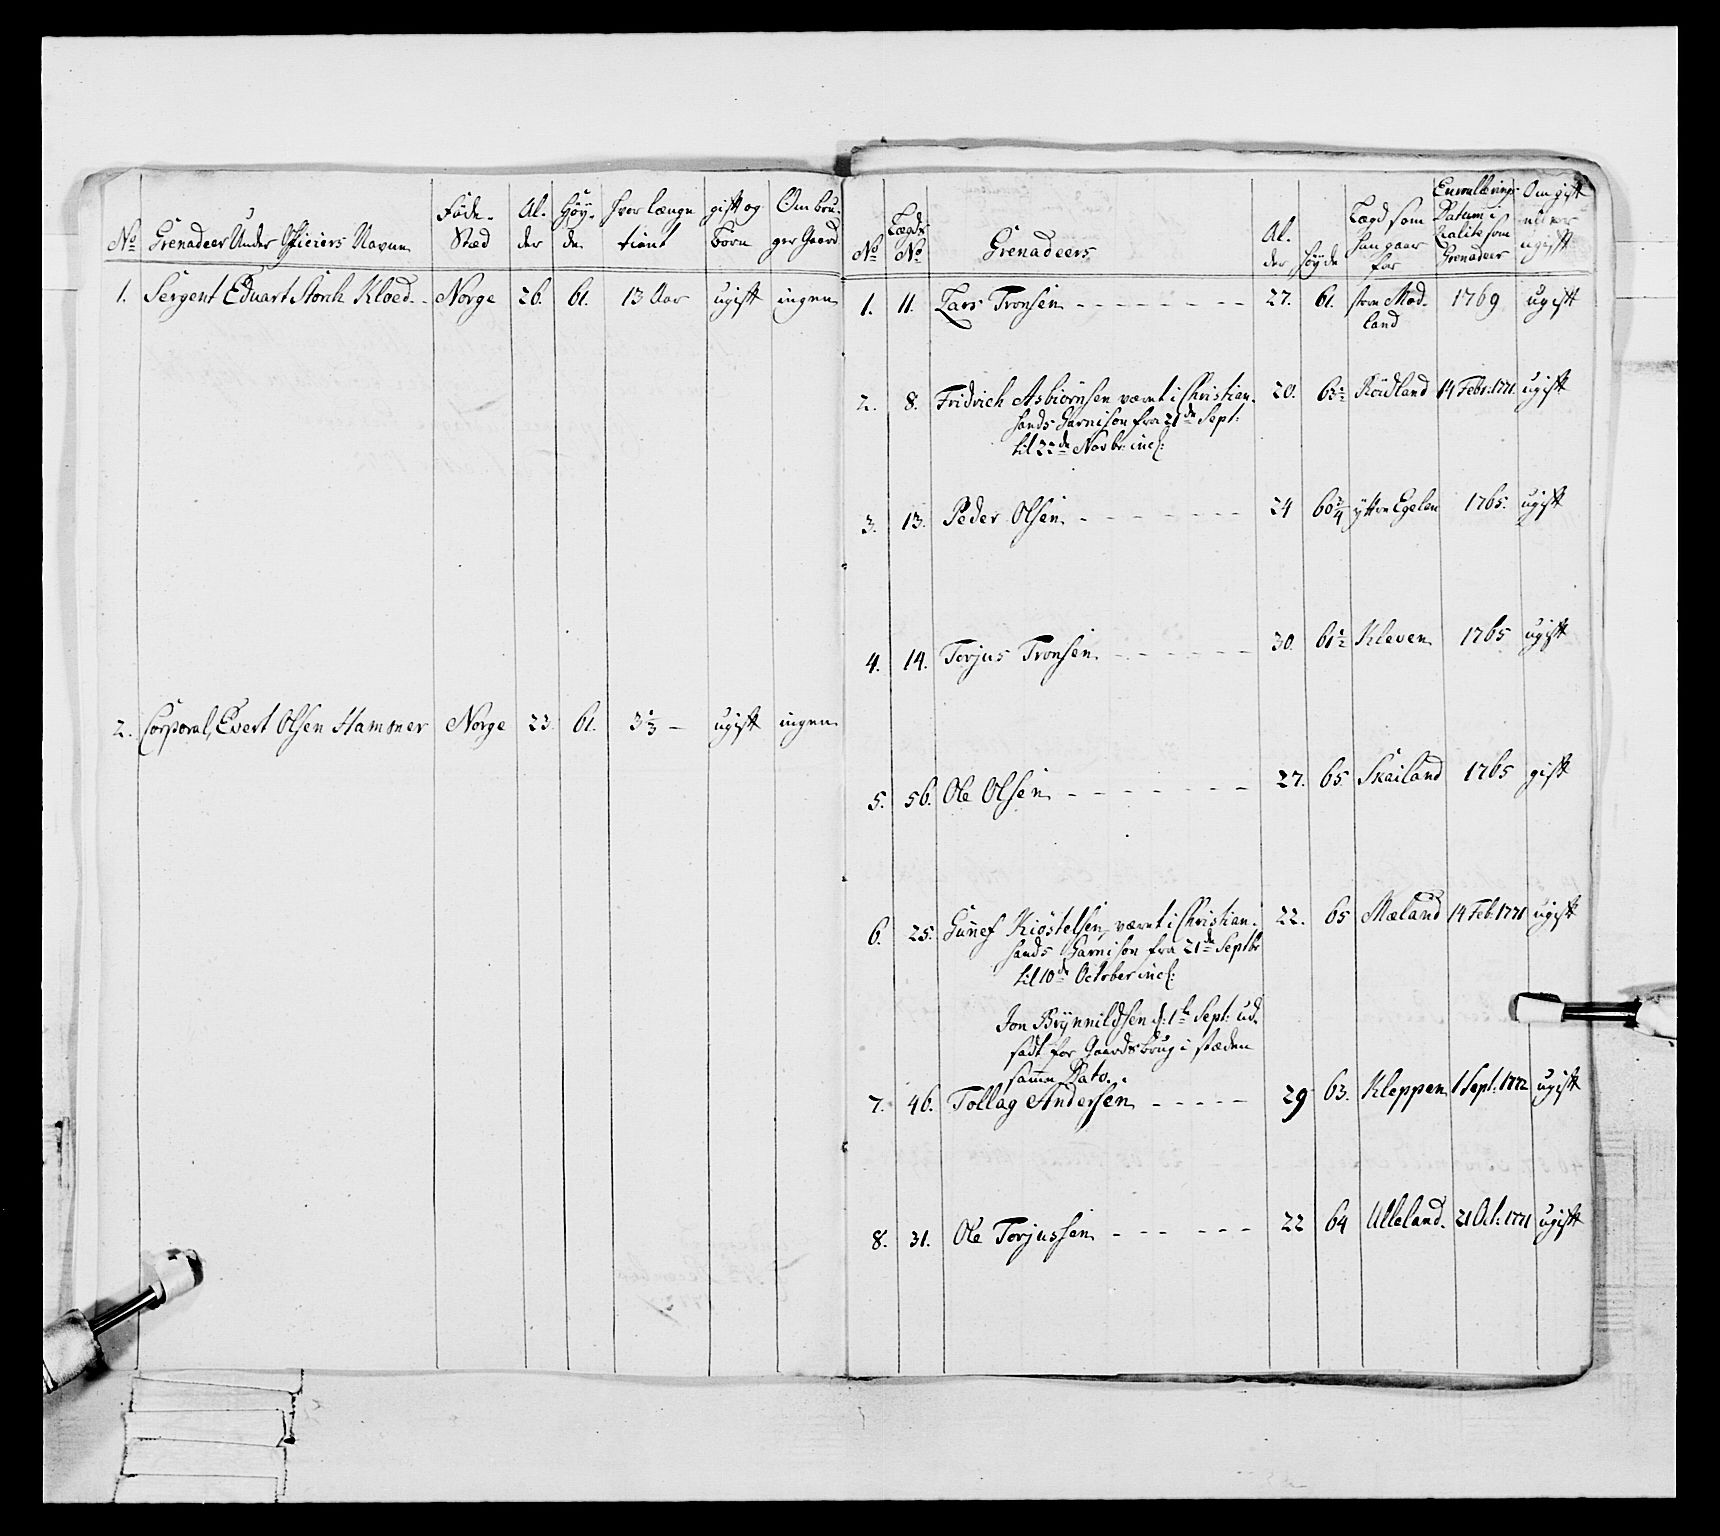 No Grenadeer Under Officiers Navne Føde-Stæd Al-der Høy-de hvor længe tient gift og Børn Om bru-ger Gaard
1. Sergent Eduart Storch Kloed Norge 26. 61. 13 Aar ugift ingen
2. Corporal, Evert Olsen Hammer Norge 23 61. 3 1/3 — ugift ingen
No Lægds No Grenadeers Al-der Høyde Lægd som han gaar for Enroullerings Datum i Qualite som Grenadeer Om gift eller ugift
1. 11. Lars Tronsen 27. 61. Mod-land 1769 ugift
2. 8. Fridrich Asbiørnsen været i Christian- 20. 63 1/2 Rödland 14 Febr: 1771. ugift
sands Garnison fra 21de Sept:
til 22de Novbr: incl:
3. 13. Peder Olsen 24 60 3/4 ytre Egelan 1765. ugift
4. 14. Torjus Tronsen 30. 61 1/2 Kleven 1765 ugift
5. 56. Ole Olsen 27. 65 Skailand 1765 gift
6. 25. Gunef Kiøstelsen, været i Christian- 22. 65 Mæland 14 Feb: 1771 ugift
sands Garnison fra 21de Septbr
til 10de October incl:
Jon Brynnildsen d: 1te Sept: ud-
sadt for Gaardsbrug i stæden
samme Dato.
7. 46. Tollag Andersen 29 63. Kleppen 1 Sept: 1772 ugift
8. 31. Ole Torjussen 22 64 Ulleland. 21 Oct: 1771 ugift